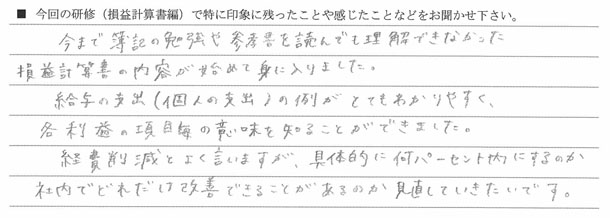 ■ 今回の研修（損益計算書編）で特に印象に残ったことや感じたことなどをお聞かせ下さい。
今まで簿記の勉強や参考書を読んでも理解できなかった
損益計算書の内容が始めて身に入りました。
給与の支出（個人の支出）の例がとてもわかりやすく、
各利益の項目毎の意味を知ることができました。
経費削減とよく言いますが、具体的に何パーセント内にするのか
社内でどれだけ改善できることがあるのか見直していきたいです。